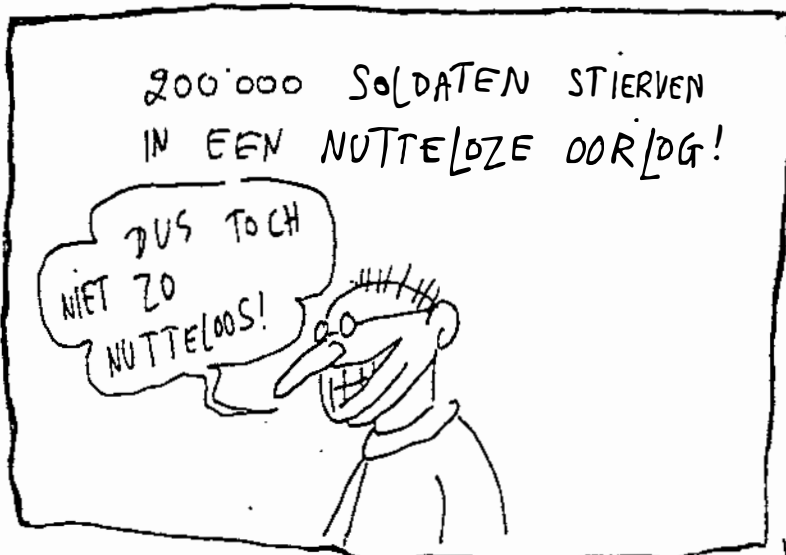 200.000 SOLDATEN STIERVEN
IN EEN NUTTELOZE OORLOG!
DUS TOCH
NIET ZO
NUTTELOOS!